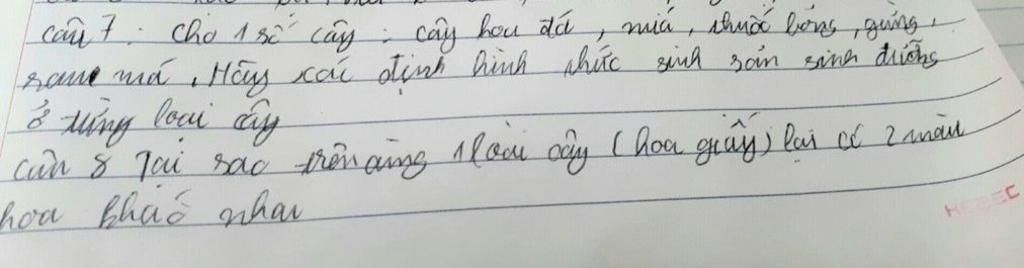 câu 7 : Cho 1 số cây : cây hoa đá, mía, thuốc bỏng, gừng,
rau má. Hãy xác định hình thức sinh sản sinh dưỡng
ở từng loại cây
câu 8 Tại sao trên cùng 1 loài cây (hoa giấy) lại có 2 màu
hoa khác nhau